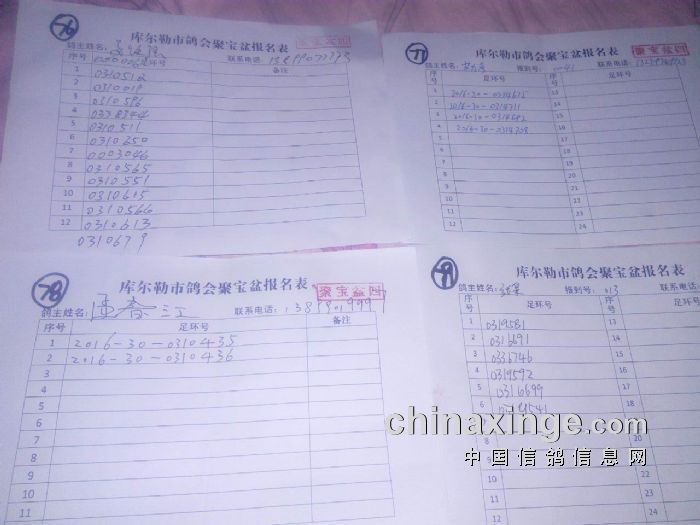 76
库尔勒市鸽会聚宝盆报名表
聚宝盆四
鸽主姓名：
联系电话：
序号 足环号 备注
1 0310512
2 0310019
3 0310596
4
5 0310511
6 0310650
7 0003046
8 0310565
9 0310551
10 0310615
11 0310566
12 0310613
0310679
77
库尔勒市鸽会聚宝盆报名表
聚宝盆四
鸽主姓名： 报到号： 联系电话：
序号 足环号 序号 足环号
1 2016-30-0314615 13
2 2016-30-0314711
3 2016-30-0314682 15
4 2016-30-0314708 16
5
6
7
8
9
10 22
11 23
12 24
78
库尔勒市鸽会聚宝盆报名表
聚宝盆四
鸽主姓名： 联系电话：
序号 足环号 备注
1 2016-30-0310435
2 2016-30-0310436
3
4
5
6
7
8
9
10
11
库尔勒市鸽会聚宝盆报名表
鸽主姓名： 报到号： 013 联系
序号 足环号 序号
1 0319581 13
2 0316691 14
3 0336746 15
4 0319592 16
5 0316699 17
6 18
8
9
10 22
11 23
12 24
chinaxinge.com
中国信鸽信息网